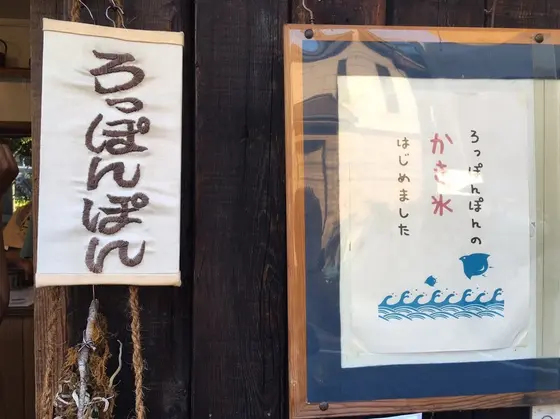 ろっぽんぽん
ろっぽんぽんの
かき氷
はじめました